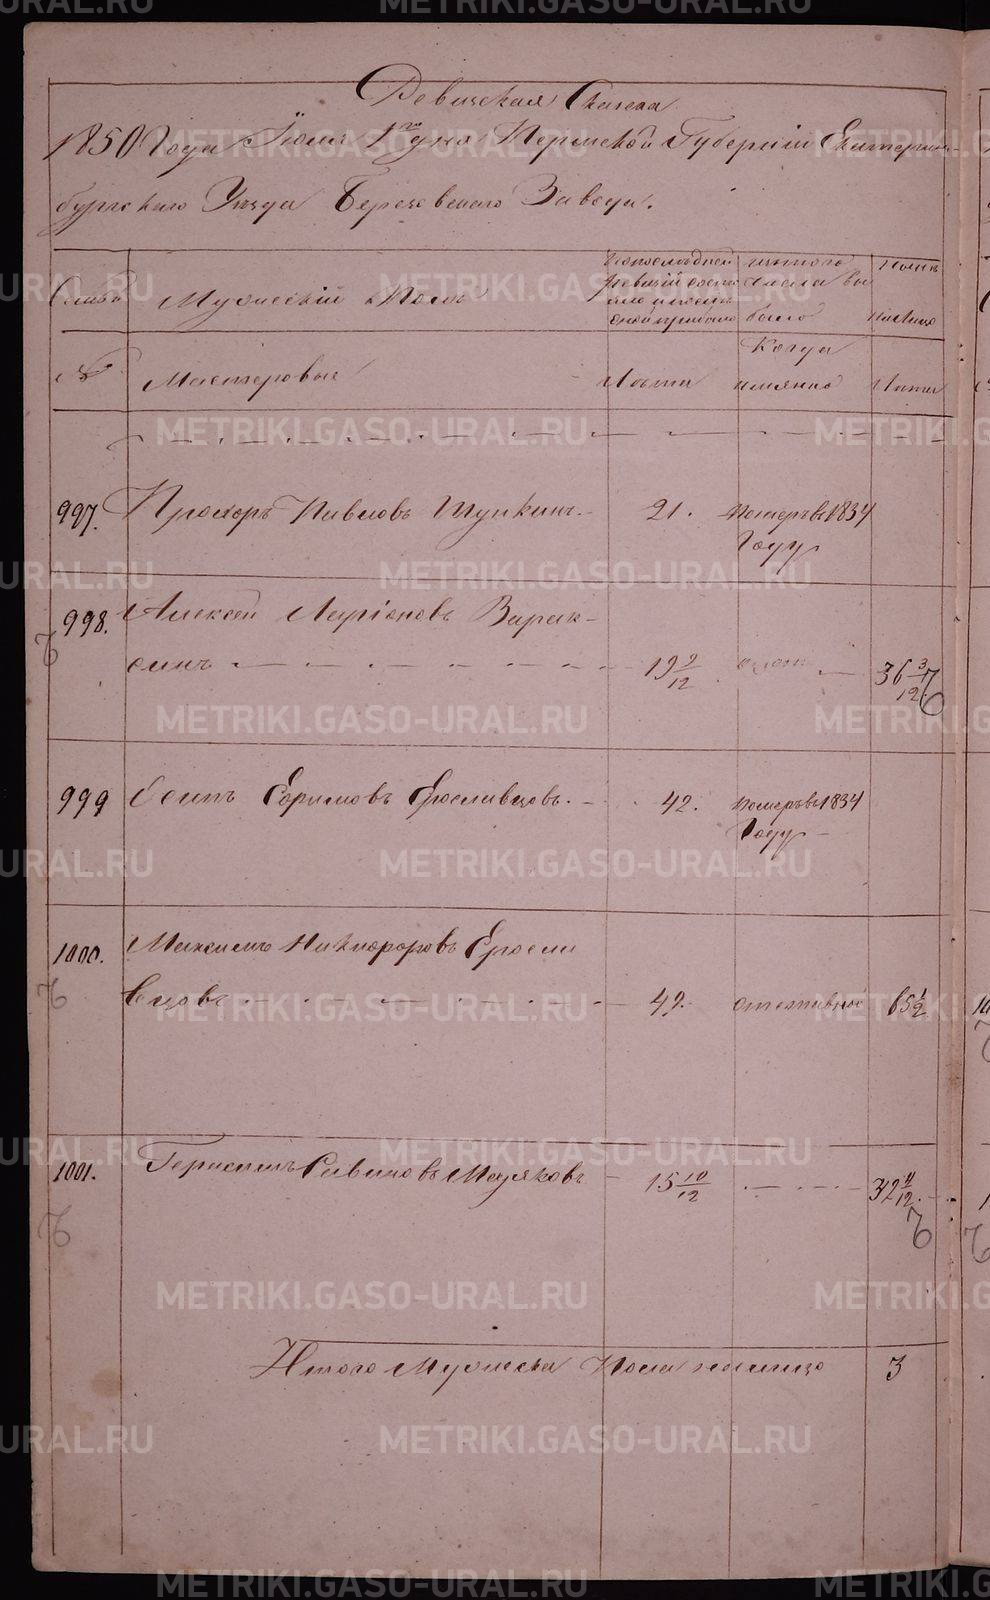 Ревижская Сказка
1850 Года Іюня 1го дня Пермской Губерніи Екатерин-
бургскаго Уезда Березовскаго Завода.
Семьи Мужескій Полъ
По последней ревизіи состояло и после оной прибыло
изъ того числа выбыло
Ныне на лицо
№ Мастеровые Лета Когда имянно Лета
997. Прохоръ Павловъ Шупкинъ 21. Померъ въ 1834
Году
998. Алексей Ларіоновъ Варак-
синъ 19 9/12 36 3/12
999 Осипъ Ефимовъ Ерославцовъ. 42. Померъ въ 1834
Году
1000. Максимъ Никифоровъ Еросла
вцовъ 49. отставной 65 1/2
1001. Герасимъ Савиновъ Маляковъ 15 10/12 32 4/12
Итого Мужеска Пола налицо 3
METRIKI.GASO-URAL.RU